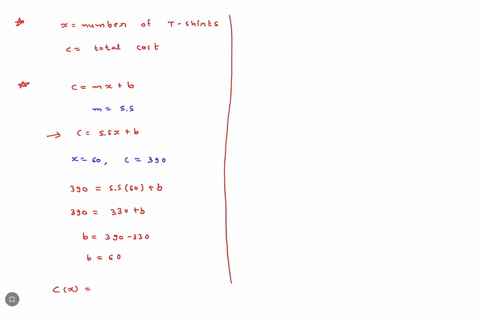 * x = number of T-shirts
c = total cost
* c = mx + b
m = 5.5
→ c = 5.5x + b
x = 60, c = 390
390 = 5.5(60) + b
390 = 330 + b
b = 390 - 330
b = 60
C(x) =